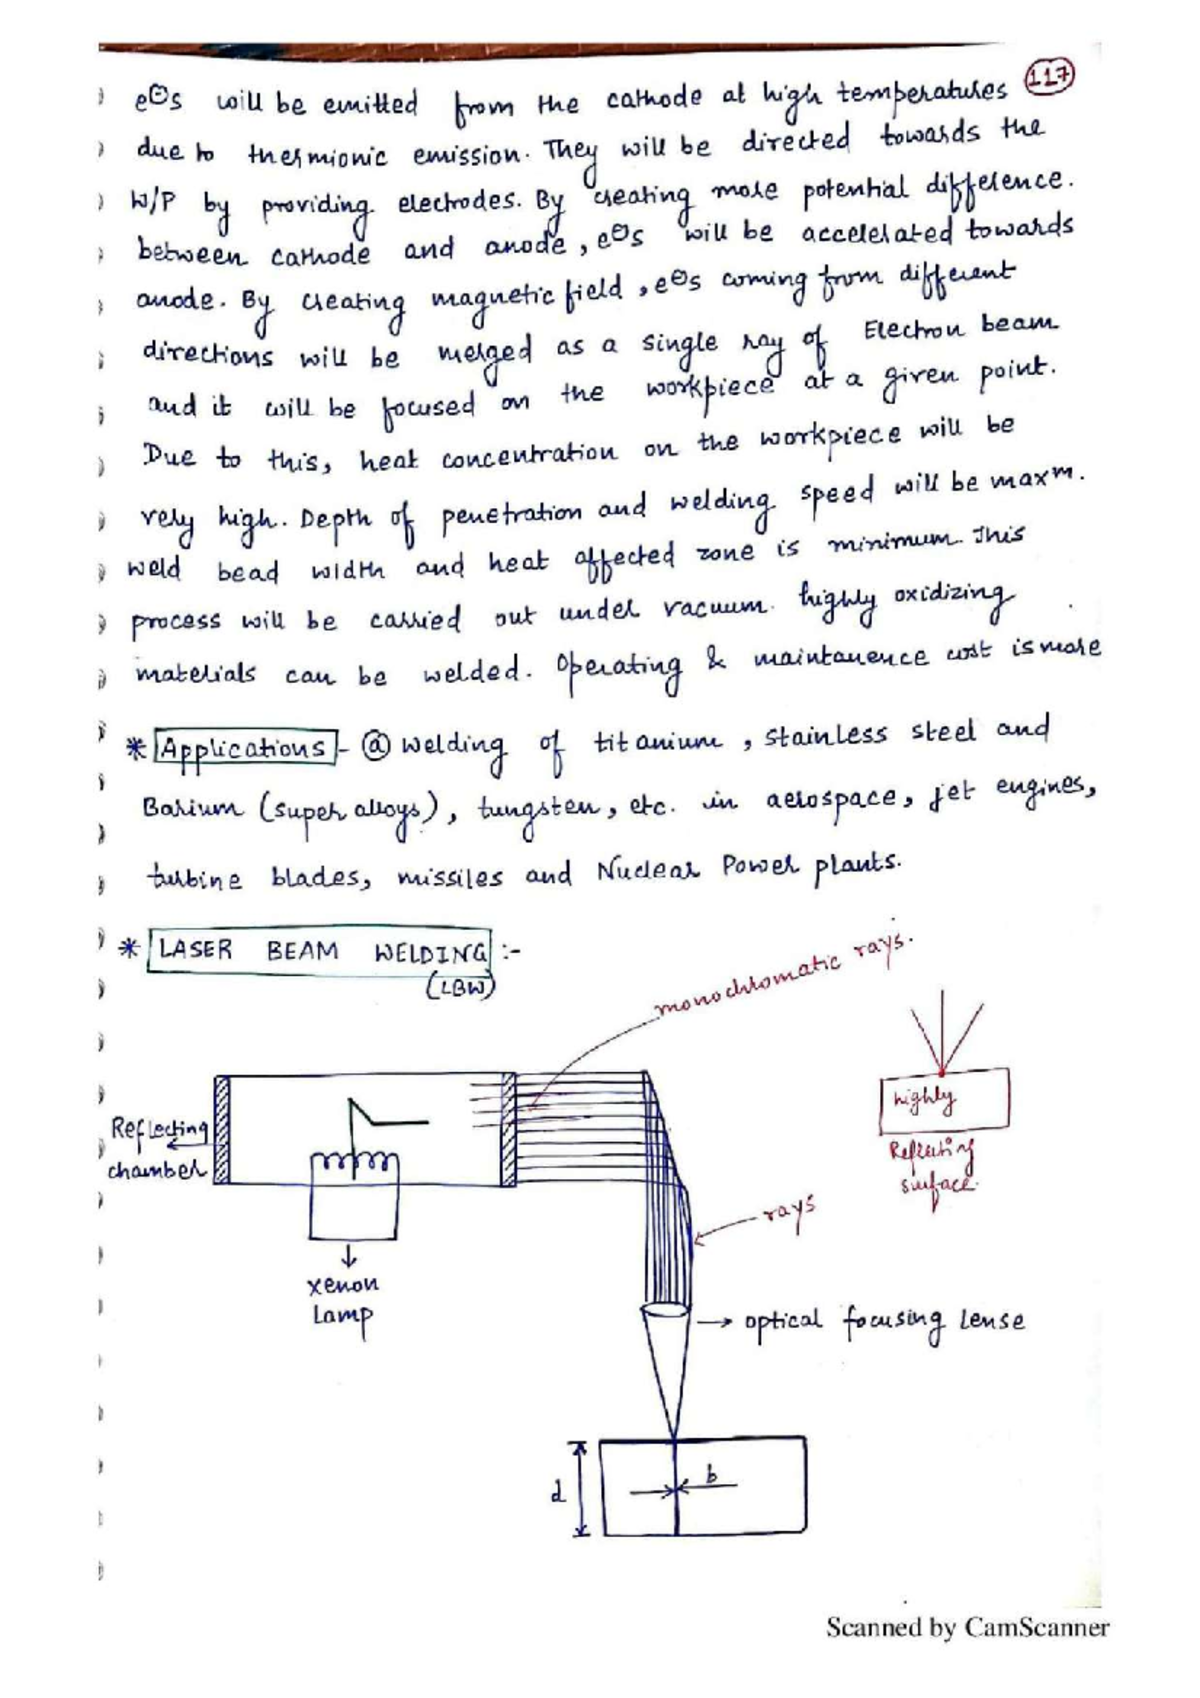 117
e⊖s will be emitted from the cathode at high temperatures
due to thermionic emission. They will be directed towards the
W/P by providing electrodes. By creating more potential difference.
between cathode and anode, e⊖s will be accelerated towards
anode. By creating magnetic field, e⊖s coming from different
directions will be merged as a single ray of Electron beam
and it will be focused on the workpiece at a given point.
Due to this, heat concentration on the workpiece will be
very high. Depth of penetration and welding speed will be maxᵐ.
weld bead width and heat affected zone is minimum. This
process will be carried out under vacuum. highly oxidizing
materials can be welded. Operating & maintanence cost is more
* Applications :- @ welding of titanium, stainless steel and
Barium (super alloys), tungsten, etc. in aerospace, jet engines,
turbine blades, missiles and Nuclear Power plants.
* LASER BEAM WELDING :-
(LBW)
monochromatic rays.
highly
Reflecting
surface.
Reflecting
chamber
rays
xenon
Lamp
→ optical focusing lense
d
b
Scanned by CamScanner